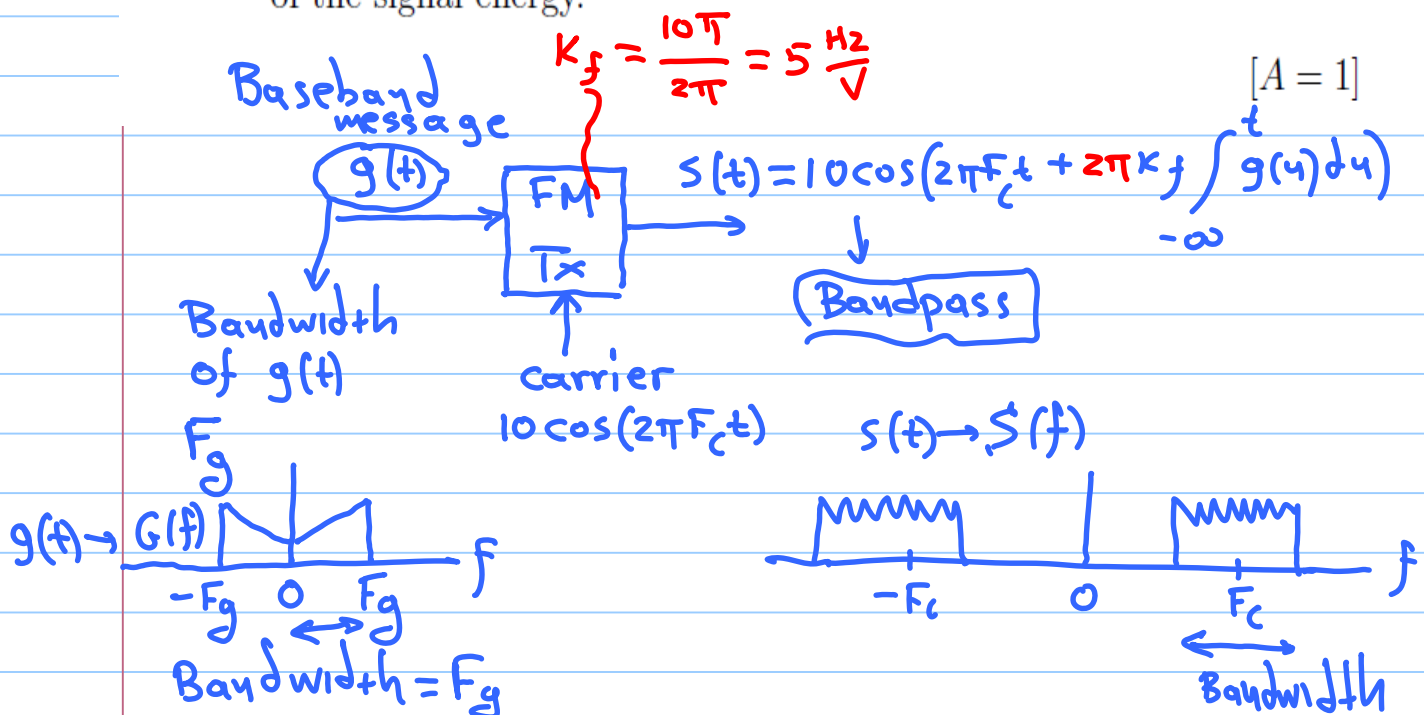 of the signal energy.
K_f = 10π/2π = 5 Hz/V
[A = 1]
Baseband
message
g(t)
FM
Tx
s(t) = 10cos(2πF_c t + 2πK_f ∫_{-∞}^{t} g(u)du)
Bandpass
Bandwidth
of g(t)
F_g
carrier
10cos(2πF_c t)
s(t) → S(f)
g(t) → G(f)
-F_g 0 F_g f
Bandwidth = F_g
-F_c 0 F_c f
Bandwidth